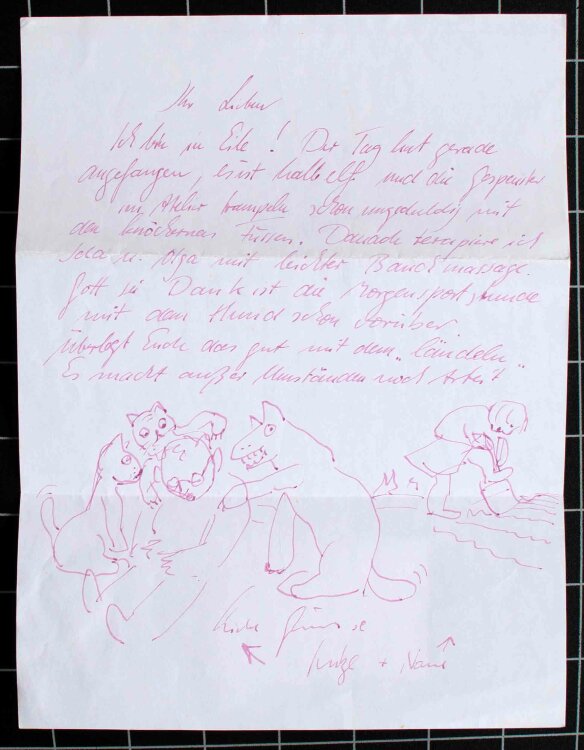 Ihr Lieben
Ich bin in Eile! Der Tag hat gerade
angefangen, es ist halb elf und die Gespenster
im Atelier trampeln schon ungeduldig mit
den knöchernen Füssen. Danach therapiere ich
u. Olga mit leichter Bauchmassage.
Gott sei Dank ist die Morgensportstunde
mit dem Hund schon vorüber.
Überlegt Euch das gut mit dem „ländeln"
Es macht außer Umständen noch Arbeit
Grüsse
+